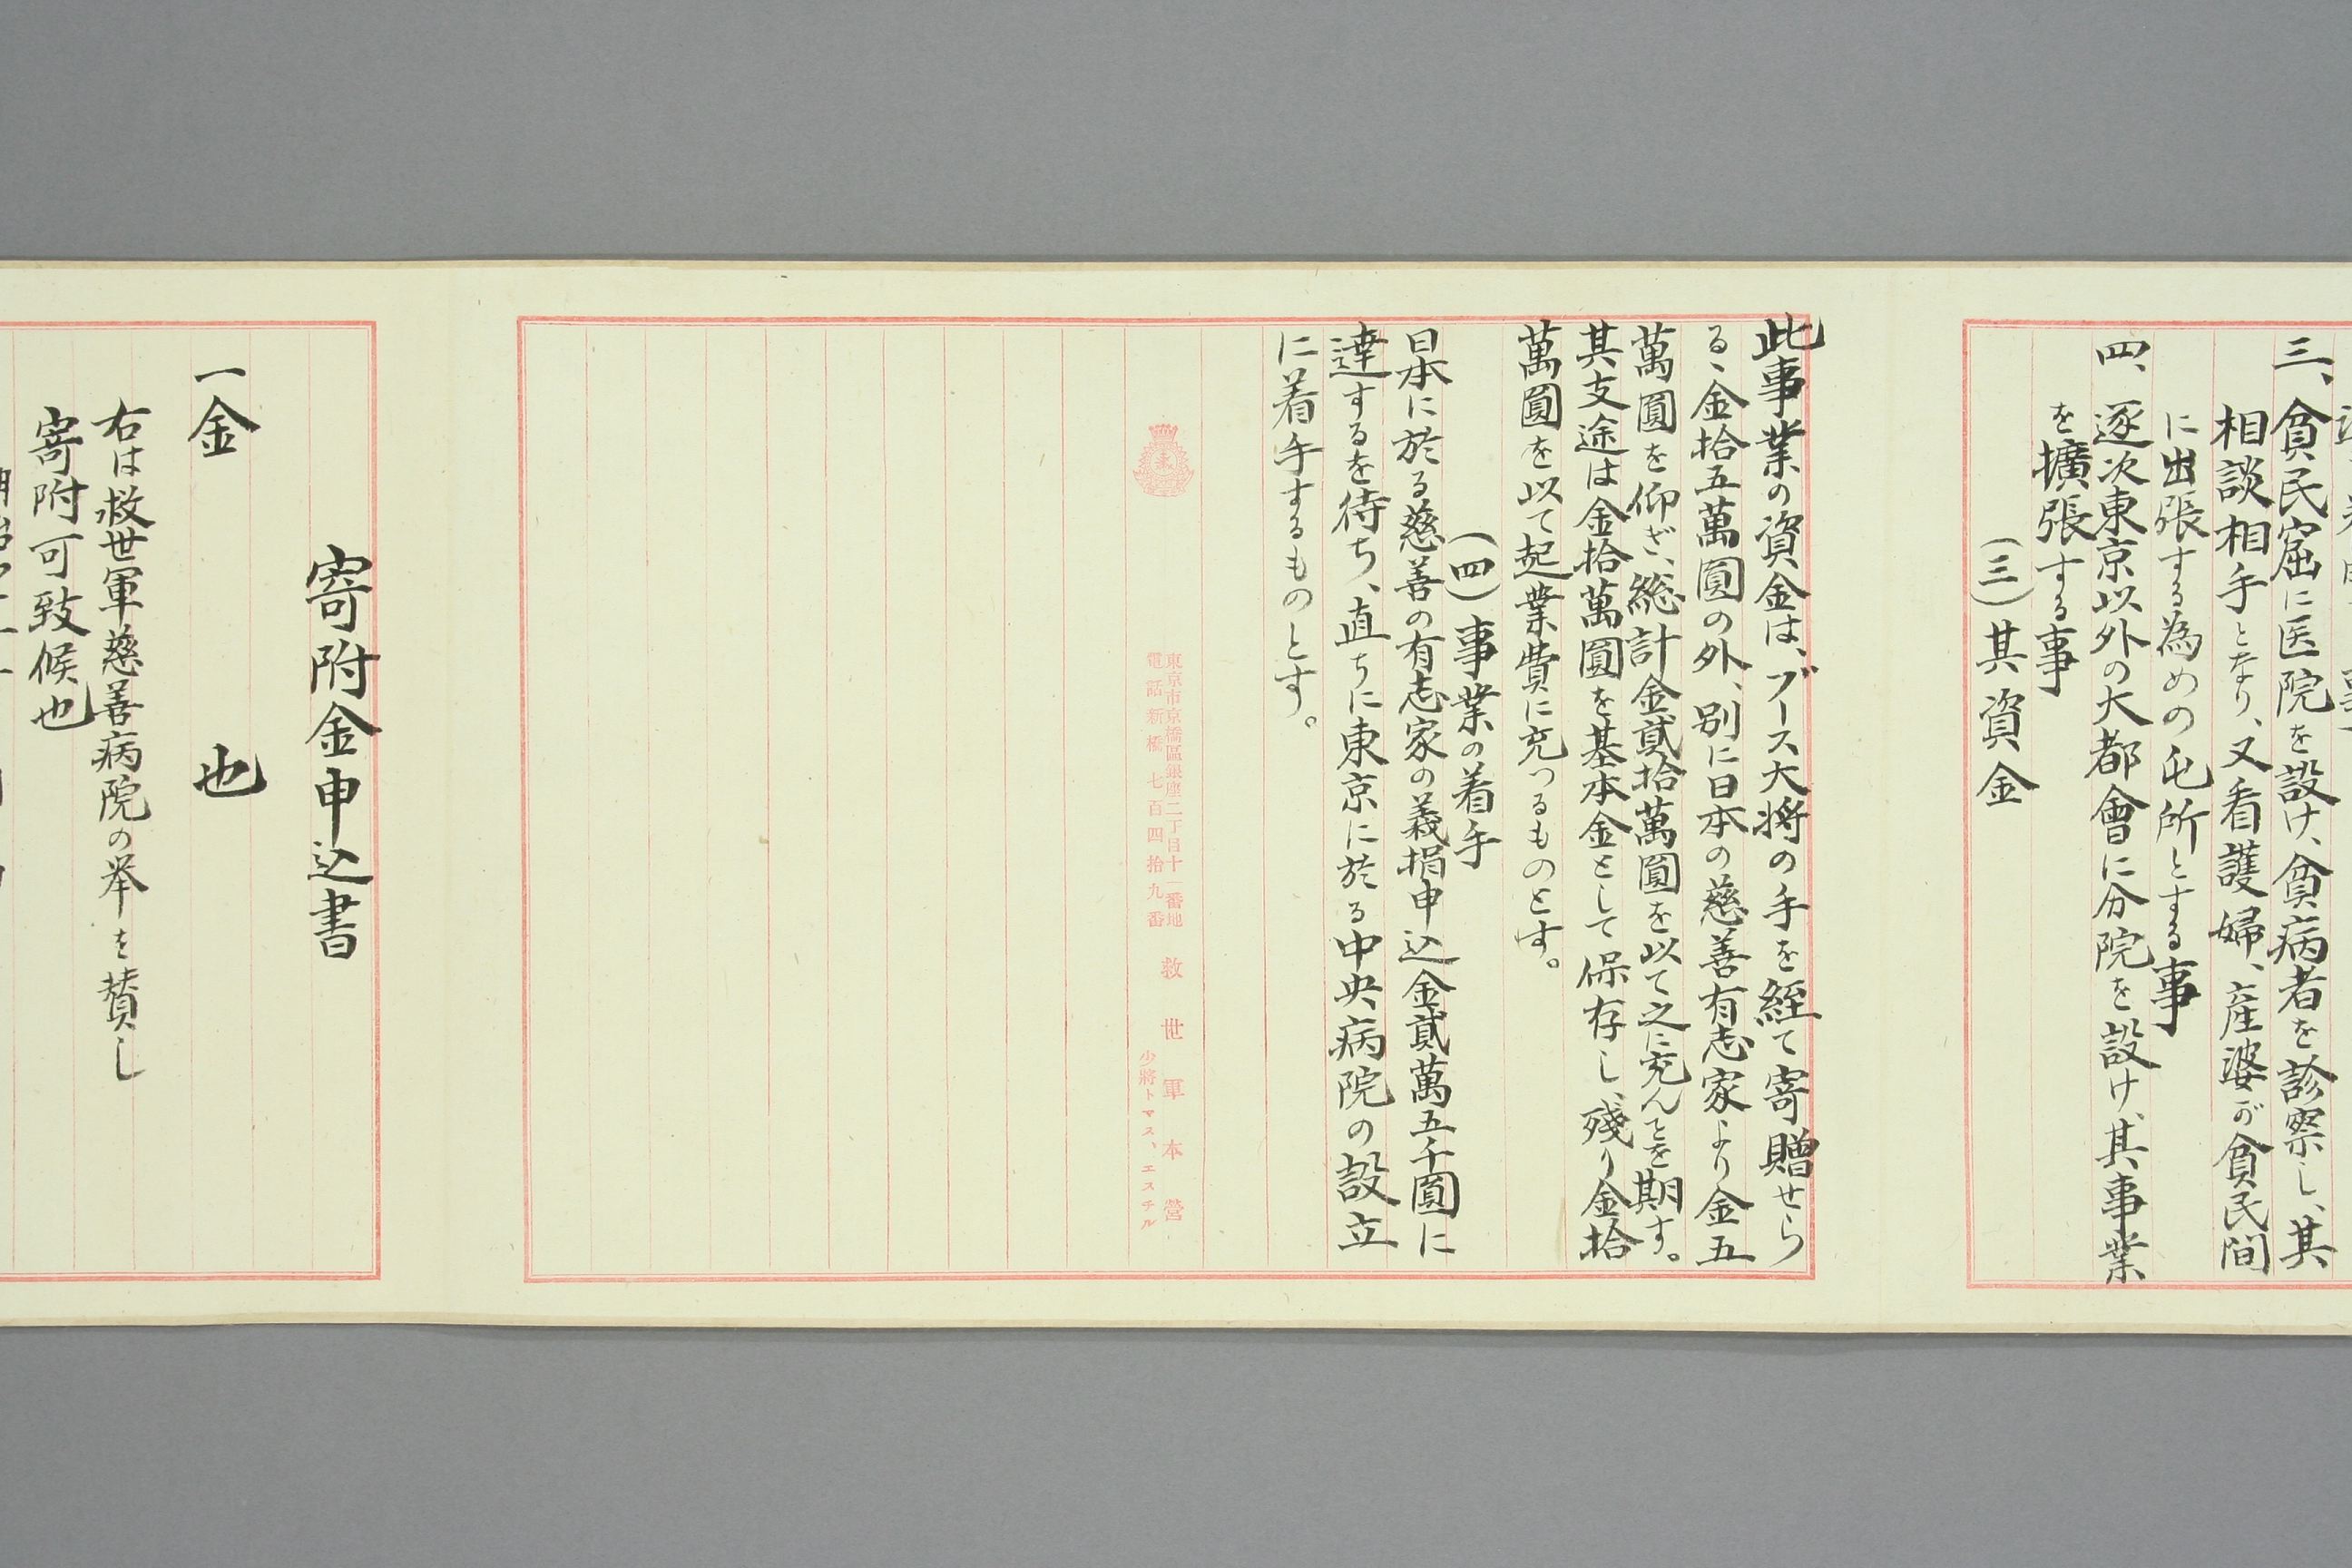 三、貧民窟に医院を設け、貧病者を診察し、其
相談相手となり、又看護婦、産婆が貧民間
に出張する為めの屯所とする事
四、逐次東京以外の大都會に分院を設け、其事業
を擴張する事
(三)其資金
此事業の資金は、ブース大将の手を経て寄贈せら
るゝ金拾五萬圓の外、別に日本の慈善有志家より金五
萬圓を仰ぎ、総計金貳拾萬圓を以て之に充んとを期す。
其支途は金拾萬圓を基本金として保存し、残り金拾
萬圓を以て起業費に充つるものとす。
(四)事業の着手
日本に於る慈善の有志家の義捐申込金貳萬五千圓に
達するを待ち、直ちに東京に於る中央病院の設立
に着手するものとす。
東京市京橋區銀座二丁目十一番地
電話新橋七百四拾九番
救世軍本營
少將トマス、エスチル
寄附金申込書
一金 也
右は救世軍慈善病院の挙を賛し
寄附可致候也